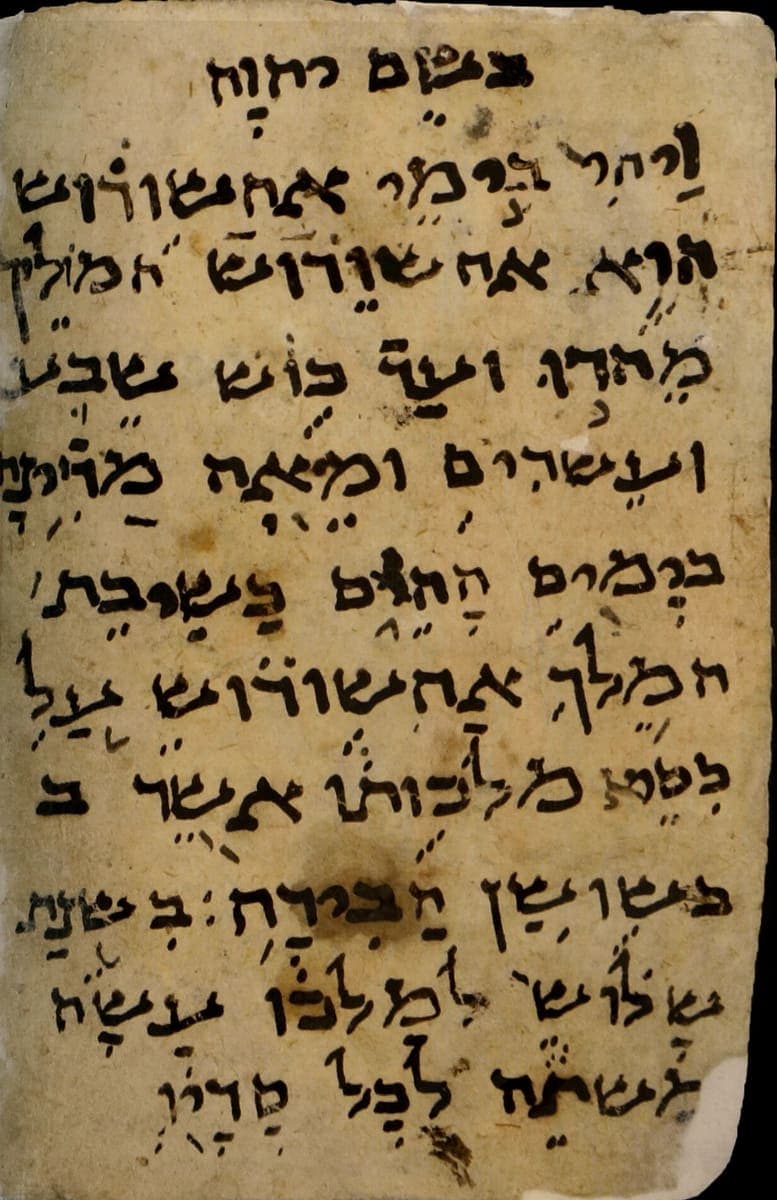 בשם יהוה
ויהי בימי אחשורוש
הוא אחשורוש המולך
מהדו ועד כוש שבע
ועשרים ומאה מדינה
בימים ההם כשיבת
המלך אחשורוש על
כסא מלכותו אשר ב
בשושן הבירה: בשנת
שלוש למלכו עשה
משתה לכל שריו